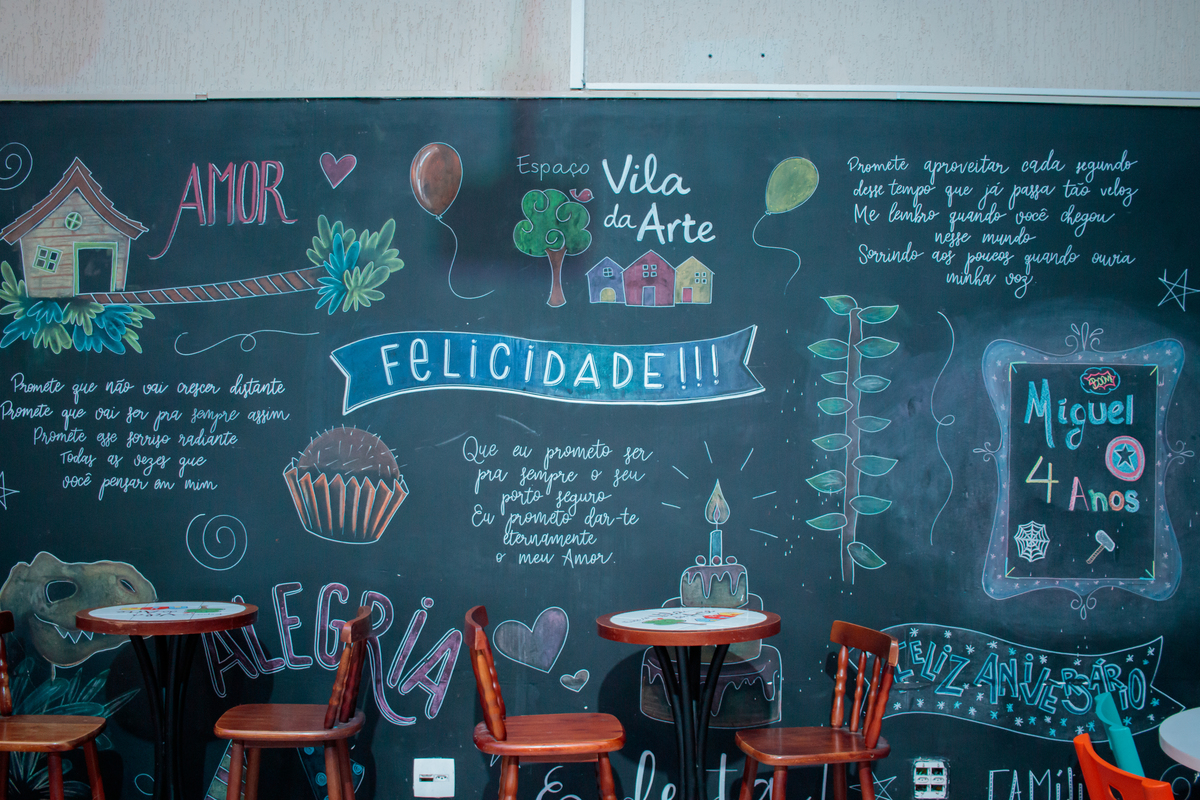 AMOR
Espaço
Vila
da Arte
Promete aproveitar cada segundo
desse tempo que já passa tão veloz
Me lembro quando você chegou
nesse mundo
Sorrindo aos poucos quando ouvia
minha voz
FELICIDADE!!!
Promete que não vai crescer distante
Promete que vai ser pra sempre assim
Promete esse sorriso radiante
Todas as vezes que
você pensar em mim
Que eu prometo ser
pra sempre o seu
porto seguro
Eu prometo dar-te
eternamente
o meu Amor.
BOOM
Miguel
4 Anos
ALEGRIA
FELIZ ANIVERSÁRIO